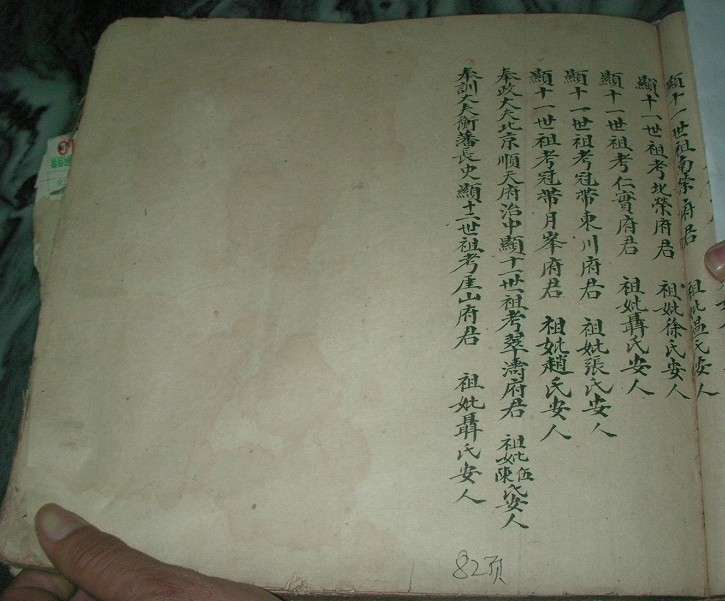 顯十一世祖南榮府君 祖妣温氏安人
顯十一世祖考北榮府君 祖妣徐氏安人
顯十一世祖考仁實府君 祖妣聶氏安人
顯十一世祖考冠帶東川府君 祖妣張氏安人
顯十一世祖考冠帶月峯府君 祖妣趙氏安人
奉政大夫北京順天府治中顯十一世祖考翠濤府君 祖妣伍陳氏安人
奉訓大夫衡藩長史顯十二世祖考崖山府君 祖妣聶氏安人
82頁